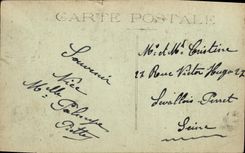 CARTE POSTALE
Souvenir
Nice
Melle
Mr. et Me Cristine
27 Rue Victor Hugo 27
Levallois-Perret
Seine